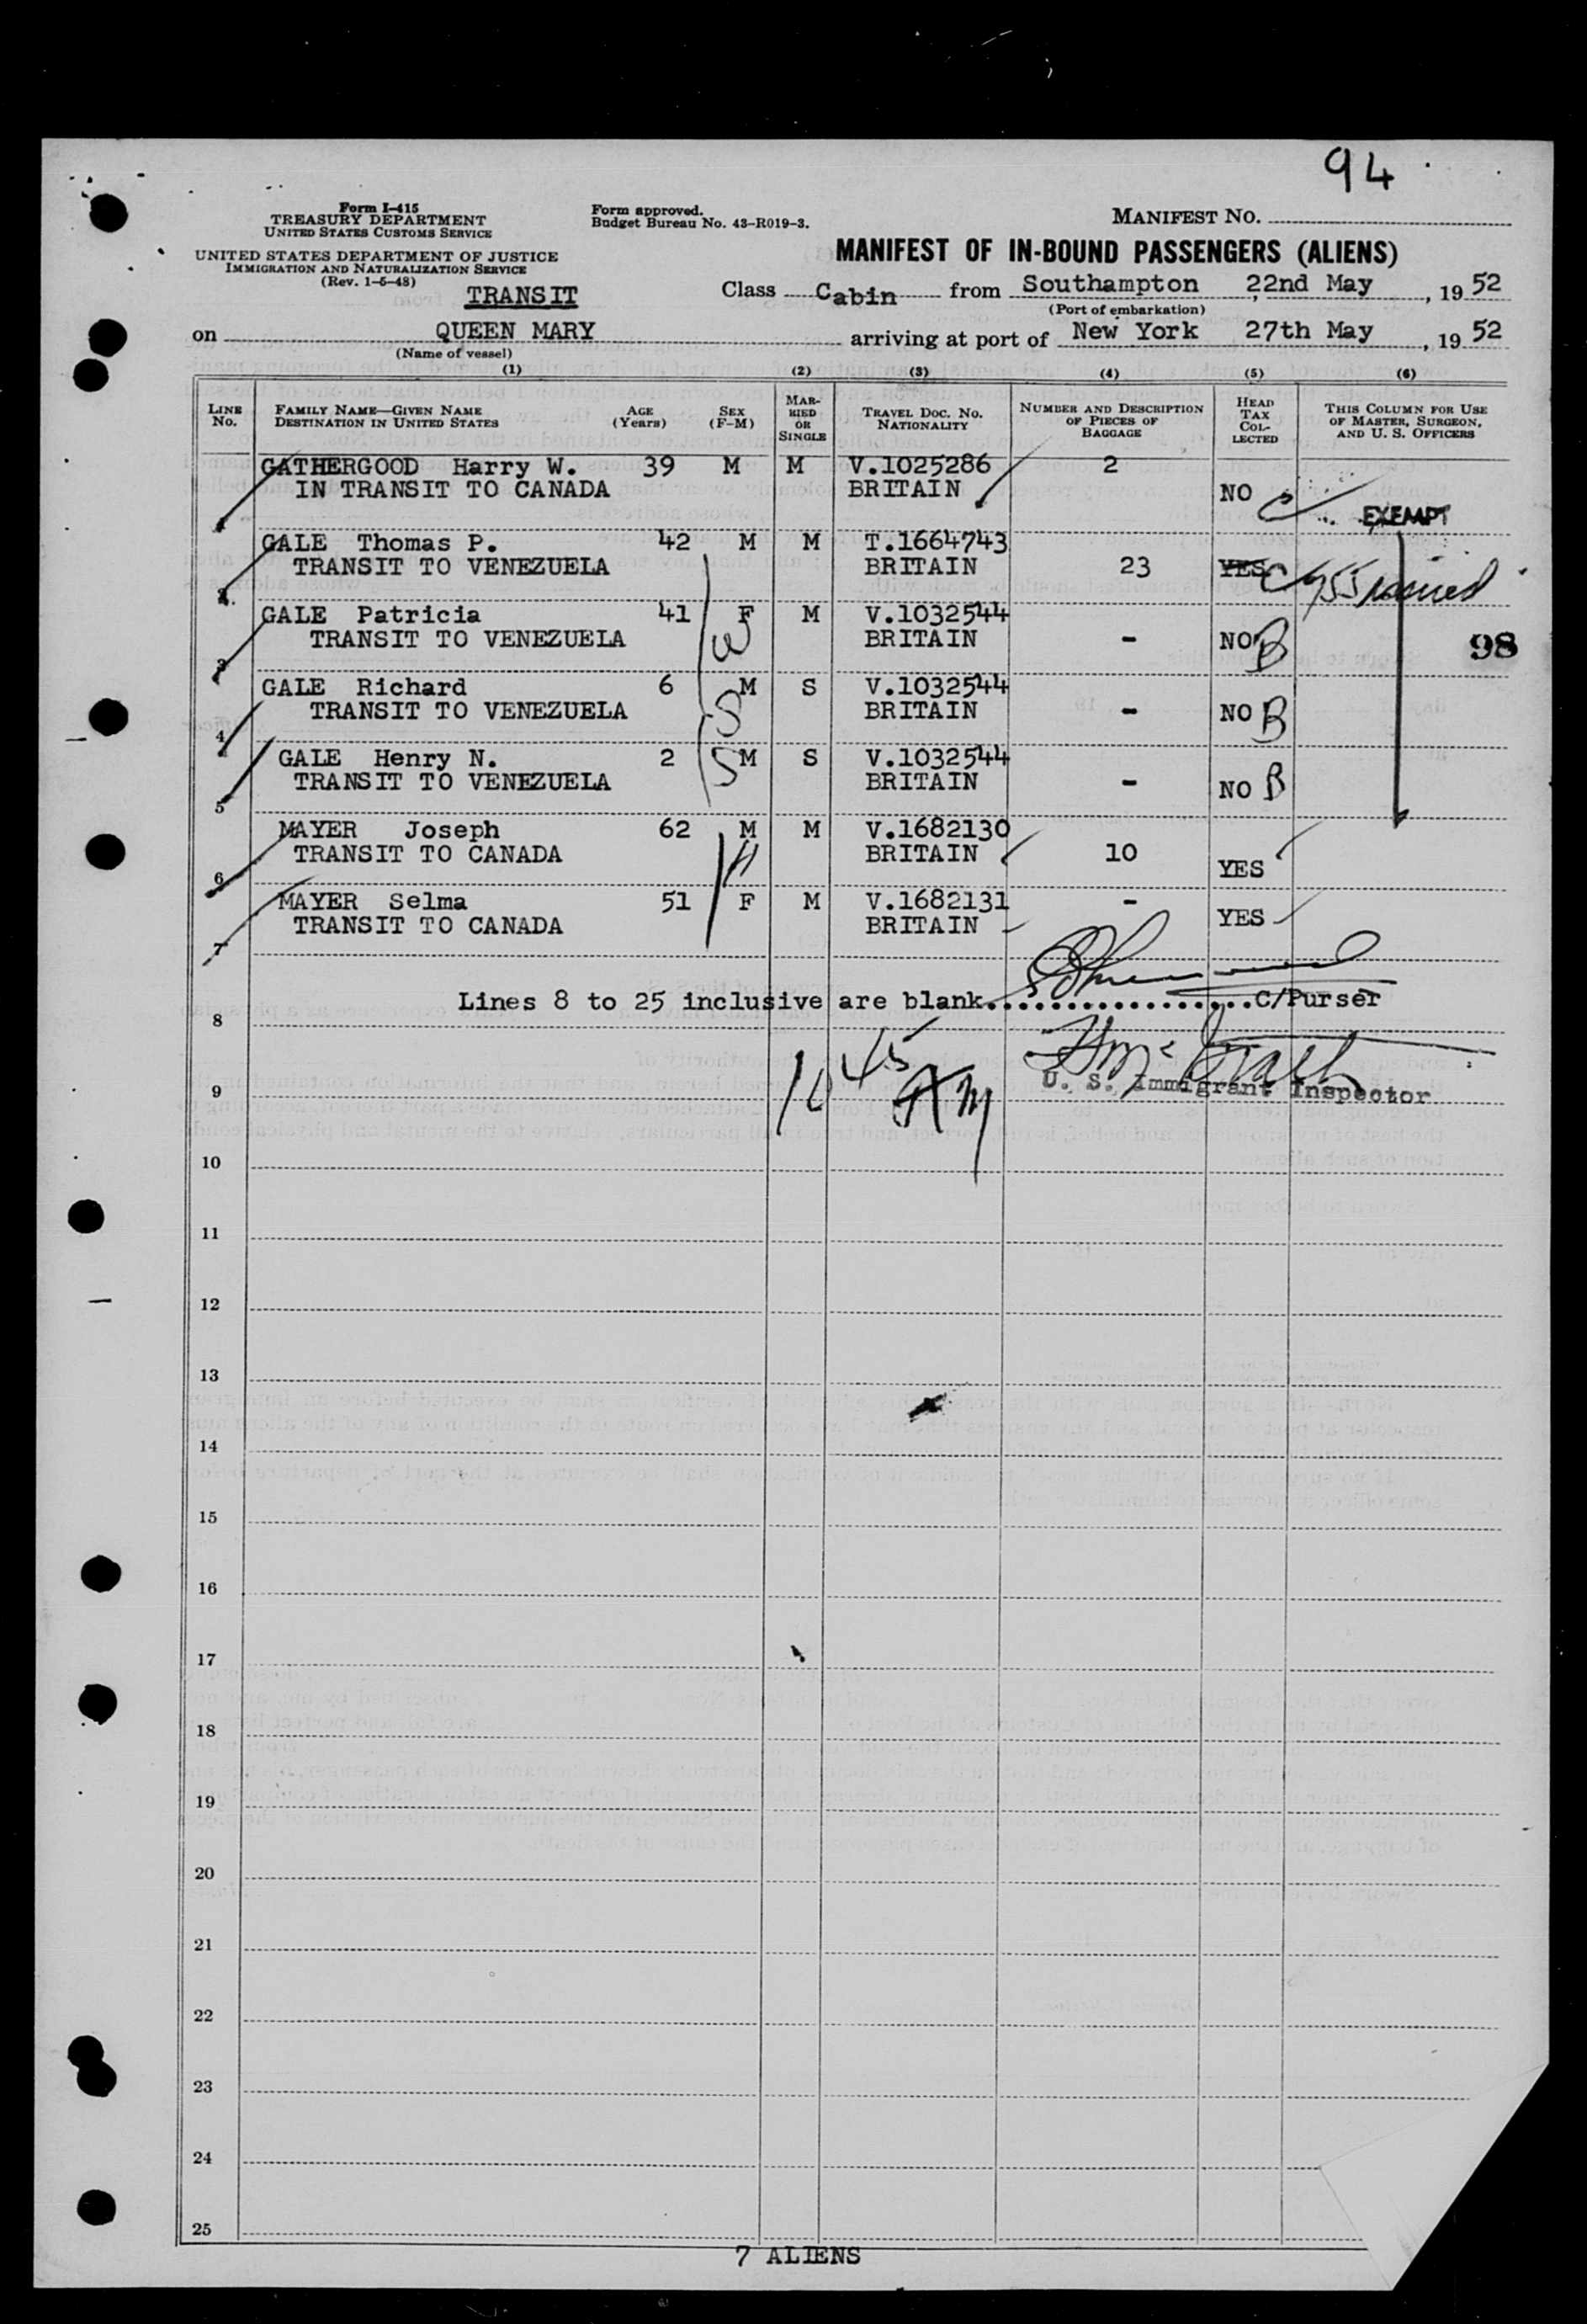 94
Form I-415
TREASURY DEPARTMENT
UNITED STATES CUSTOMS SERVICE
Form approved.
Budget Bureau No. 43-R019-3.
MANIFEST NO.
UNITED STATES DEPARTMENT OF JUSTICE
IMMIGRATION AND NATURALIZATION SERVICE
(Rev. 1-5-48)
MANIFEST OF IN-BOUND PASSENGERS (ALIENS)
TRANSIT
Class Cabin from Southampton 22nd May, 1952
(Port of embarkation)
on QUEEN MARY arriving at port of New York 27th May, 1952
(Name of vessel)
(1) (2) (3) (4) (5) (6)
LINE No.
FAMILY NAME—GIVEN NAME
DESTINATION IN UNITED STATES
AGE (Years)
SEX (F-M)
MARRIED OR SINGLE
TRAVEL DOC. NO.
NATIONALITY
NUMBER AND DESCRIPTION OF PIECES OF BAGGAGE
HEAD TAX COLLECTED
THIS COLUMN FOR USE OF MASTER, SURGEON, AND U. S. OFFICERS
GATHERGOOD Harry W. 39 M M V.1025286 2
1 IN TRANSIT TO CANADA BRITAIN NO
EXEMPT
GALE Thomas P. 42 M M T.1664743
2 TRANSIT TO VENEZUELA BRITAIN 23 YES
GALE Patricia 41 F M V.1032544
3 TRANSIT TO VENEZUELA BRITAIN - NO B
98
GALE Richard 6 M S V.1032544
4 TRANSIT TO VENEZUELA BRITAIN - NO B
GALE Henry N. 2 M S V.1032544
5 TRANSIT TO VENEZUELA BRITAIN - NO B
MAYER Joseph 62 M M V.1682130
6 TRANSIT TO CANADA BRITAIN 10 YES
MAYER Selma 51 F M V.1682131 -
7 TRANSIT TO CANADA BRITAIN YES
Lines 8 to 25 inclusive are blank..................C/Purser
8
10 45 AM
U. S. Immigrant Inspector
9
10
11
12
13
14
15
16
17
18
19
20
21
22
23
24
25
7 ALIENS